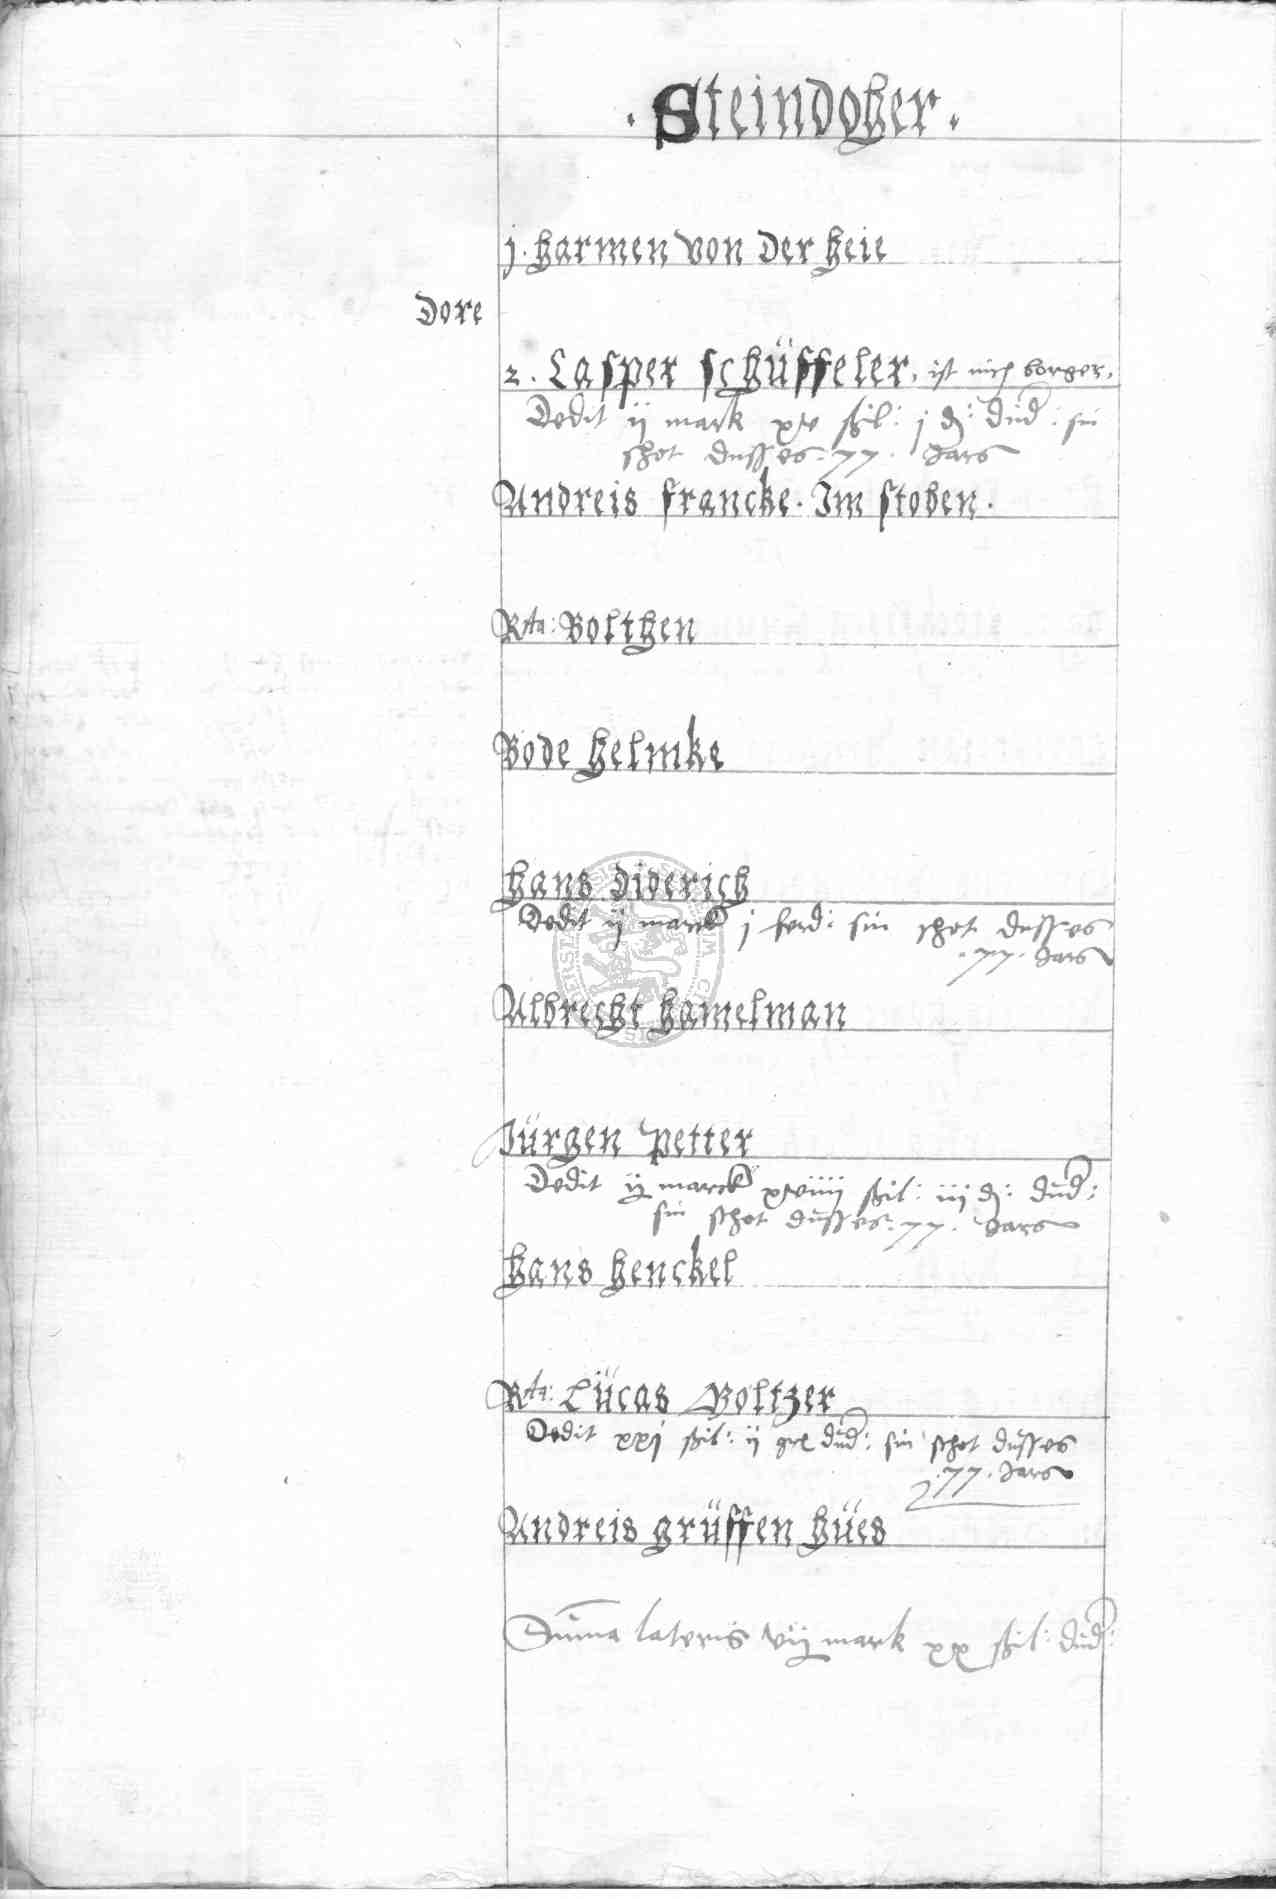 . Steindoher .
j. harmen von der heie
dore
2. Casper schüffeler, ist nich borger,
Dedit ij mark xv ßil: j d: düd: sin
schot dusses .77. Jars
Andreis francke. Im stoben.
Rta: Bolthen
Bode helmke
hans diderich
Dedit ij marck j ferd: sin schot dusses
.77. Jars
Albrecht hamelman
Jürgen petter
Dedit ij marck xviiij ßil: iij d: düd:
sin schot düsses .77. Jars
hans henckel
Rta: Lücas Boltzer
Dedit xxj ßil: ij düd: sin schot düsses
.77. Jars
Andreis grüffen hües
Suma lateris vij mark xx ßil: düd: